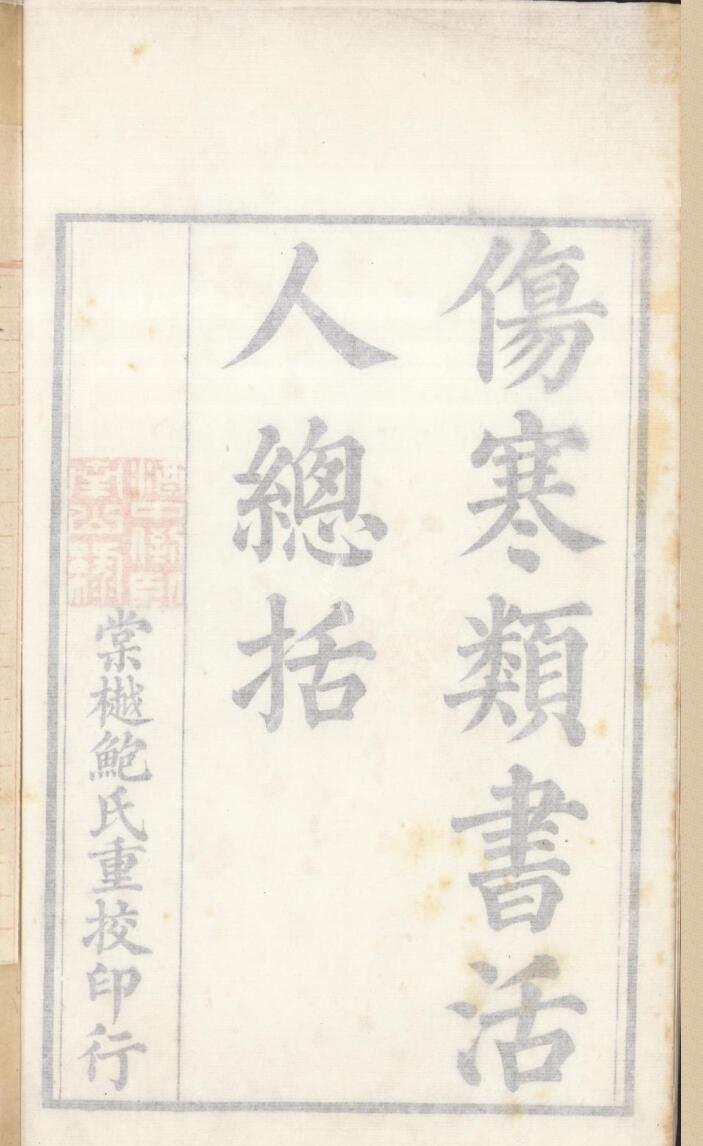 傷寒類書活
人總括
棠樾鮑氏重挍印行